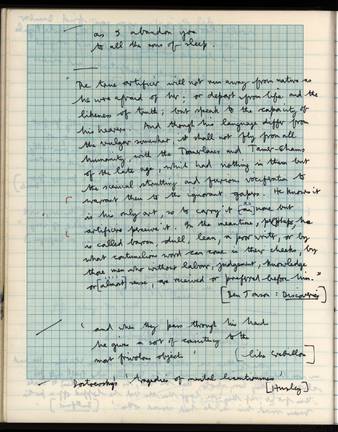 as I abandon you
to all the of sleep.
The true artificer will not run away from nature as
he were afraid of her; or depart from life and the
likeness of truth; but speak to the capacity of
his hearers. And though his language differ from
the vulgar somewhat it shall not fly from all
humanity, with the Tamerlanes and Tamer-Chams
of the late age, which had nothing in them but
the scenical strutting and furious vociferation to
warrant them to the ignorant gapers. He knows it
is his only art, so to carry it [as] none but
artificers perceive it. In the meantime, perhaps, he
is called barren, dull, lean, a poor writer, or by
what contumelious word can come in their cheeks, by
those men who without labor, judgment, knowledge
or [almost] sense, are received or preferred before him."
[Ben Jonson: Discoveries]
'and when they pass through his hand
he gives a sort of to the
most frivolous objects' (like Crebillon)
Dostoevsky's 'tragedies of mental licentiousness'
[Huxley]